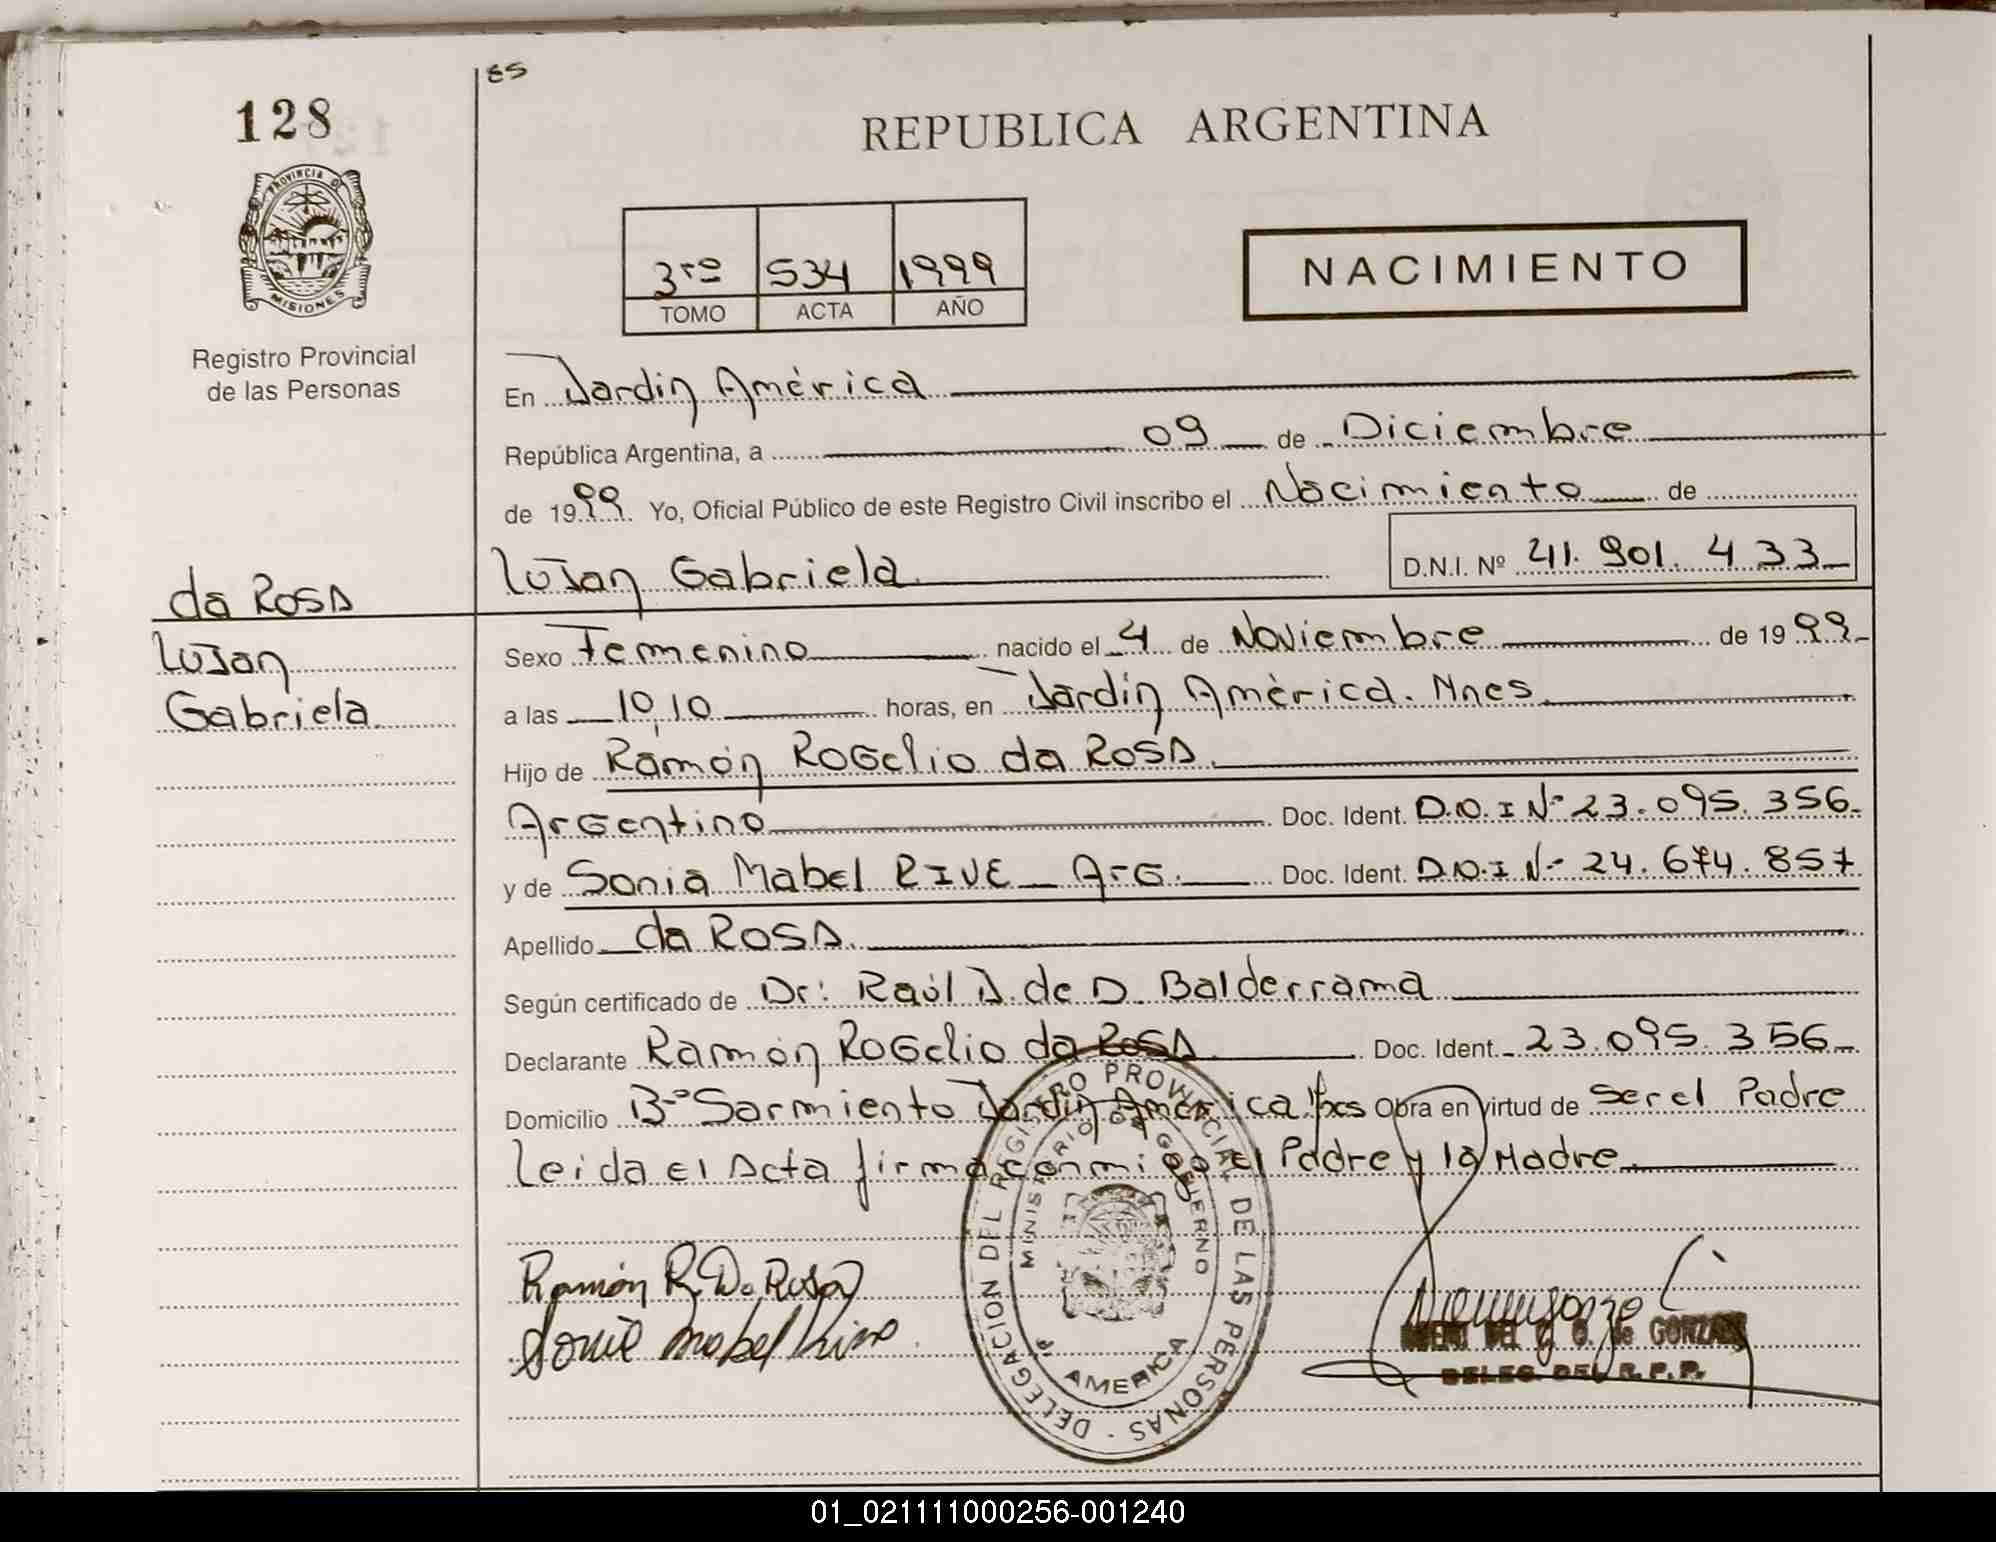 128
ES
REPUBLICA ARGENTINA
PROVINCIA DE
MISIONES
Registro Provincial
de las Personas
3ro 534 1999
TOMO ACTA AÑO
NACIMIENTO
En Jardin América
República Argentina, a 09 de Diciembre
de 1999 Yo, Oficial Público de este Registro Civil inscribo el Nacimiento de
Lujan Gabriela
D.N.I. Nº 41.901.433
da Rosa
Lujan
Gabriela
Sexo Femenino nacido el 4 de Noviembre de 1999
a las 10,10 horas, en Jardin América. Mnes
Hijo de Ramón Rogelio da Rosa
Argentino Doc. Ident. D.N.I Nº 23.095.356
y de Sonia Mabel RIVE Arg. Doc. Ident. D.N.I Nº 24.674.857
Apellido da Rosa
Según certificado de Dr: Raúl A. de D. Balderrama
Declarante Ramón Rogelio da Rosa Doc. Ident. 23.095.356
Domicilio Bº Sarmiento Jardin América Obra en virtud de ser el Padre
Leida El Acta firma conmigo el Padre y la Madre
Ramón R. Da Rosa
Sonia Mabel
DELEGACION DEL REGISTRO PROVINCIAL DE LAS PERSONAS
MINISTERIO DE GOBIERNO
AMERICA
DEL C. G. de GONZALEZ
DELEG DEL R.P.P.
01_021111000256-001240